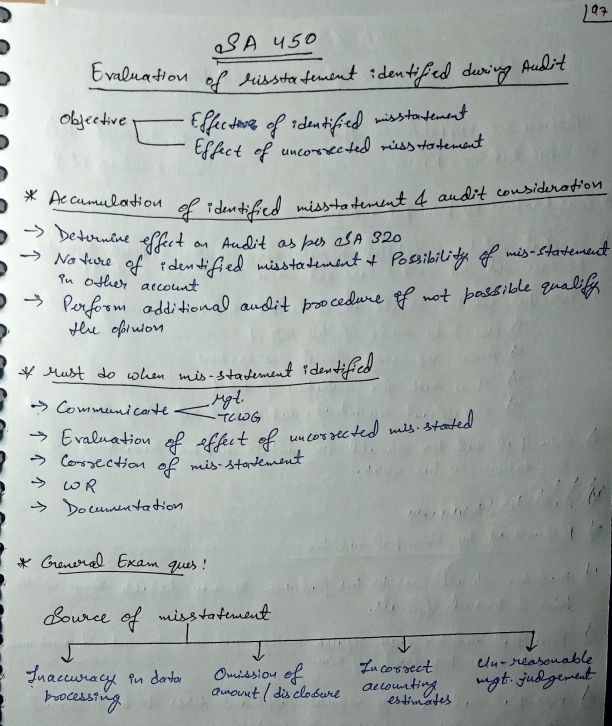 197
SA 450
Evaluation of misstatement identified during Audit
Objective
Effect of identified misstatement
Effect of uncorrected misstatement
* Accumulation of identified misstatement & audit consideration
→ Determine effect on Audit as per SA 320
→ Nature of identified misstatement + Possibility of mis-statement
in other account
→ Perform additional audit procedure if not possible qualify
the opinion
* Must do when mis-statement identified
→ Communicate
Mgt.
TCWG
→ Evaluation of effect of uncorrected mis-stated
→ Correction of mis-statement
→ WR
→ Documentation
* General Exam ques!
Source of misstatement
Inaccuracy in data
processing
Omission of
amount / disclosure
Incorrect
accounting
estimates
Un-reasonable
mgt. judgement